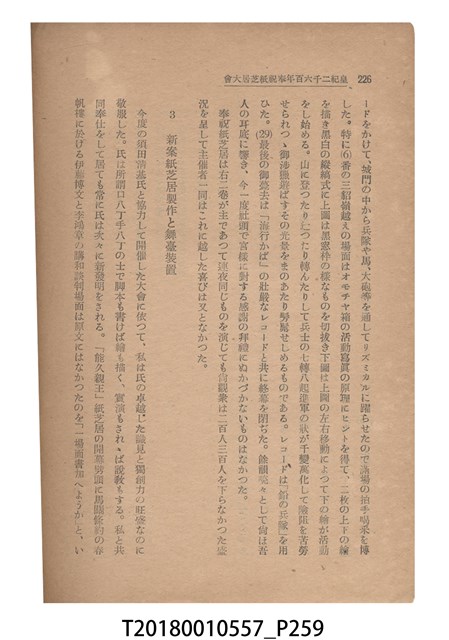 皇紀二千六百年奉祝紙芝居大會 226
ードをかけて、城門の中から兵隊や馬、大砲等を通してリズミカルに躍らせたので滿場の拍手喝采を博
した。特に(6)番の三貂嶺越えの場面はオモチヤ箱の活動寫眞の原理にヒントを得て、二枚の上下の繪
を描き黑白の縱縞式に上圖は黑窓枠の樣なものを切拔き下圖は上圖の左右移動によつて下の繪が活動
をし始める。山に登つたり辷つたり轉んたりして兵士の七轉八起進軍の狀が千變萬化して險阻を苦勞
せられつゝ御涉獵遊ばすその光景をまのあたり髣髴せしめるものである。レコードは「鉛の兵隊」を用
ひた。(29)最後の御薨去は「海行かば」の壯嚴なレコードと共に終幕を閉ぢた。餘韻嫋々として尙ほ吾
人の耳底に響き、今一度社頭で宮樣に對する感謝の拜禮にぬかづかないものはなかつた。
奉祝紙芝居は右二卷が主であつて連夜同じものを演じても尙觀衆は二百人三百人を下らなかつた盛
況を呈して主催者一同はこれに越した喜びは又となかつた。
3 新案紙芝居製作と舞臺裝置
今度の須田淸基氏と協力して開催した大會に依つて、私は氏の卓越した識見と獨創力の旺盛なのに
敬服した。氏は所謂口八丁手八丁の士で脚本も書けば繪も描く、實演もされゝば說教もする。私と共
同奉仕をして居ても常に氏は次々に新發明をされる。「能久親王」紙芝居の開幕劈頭に馬關條約の春
帆樓に於ける伊藤博文と李鴻章の講和談判場面は原文にはなかつたのを「一場面書加へようか」と、い
T20180010557_P259